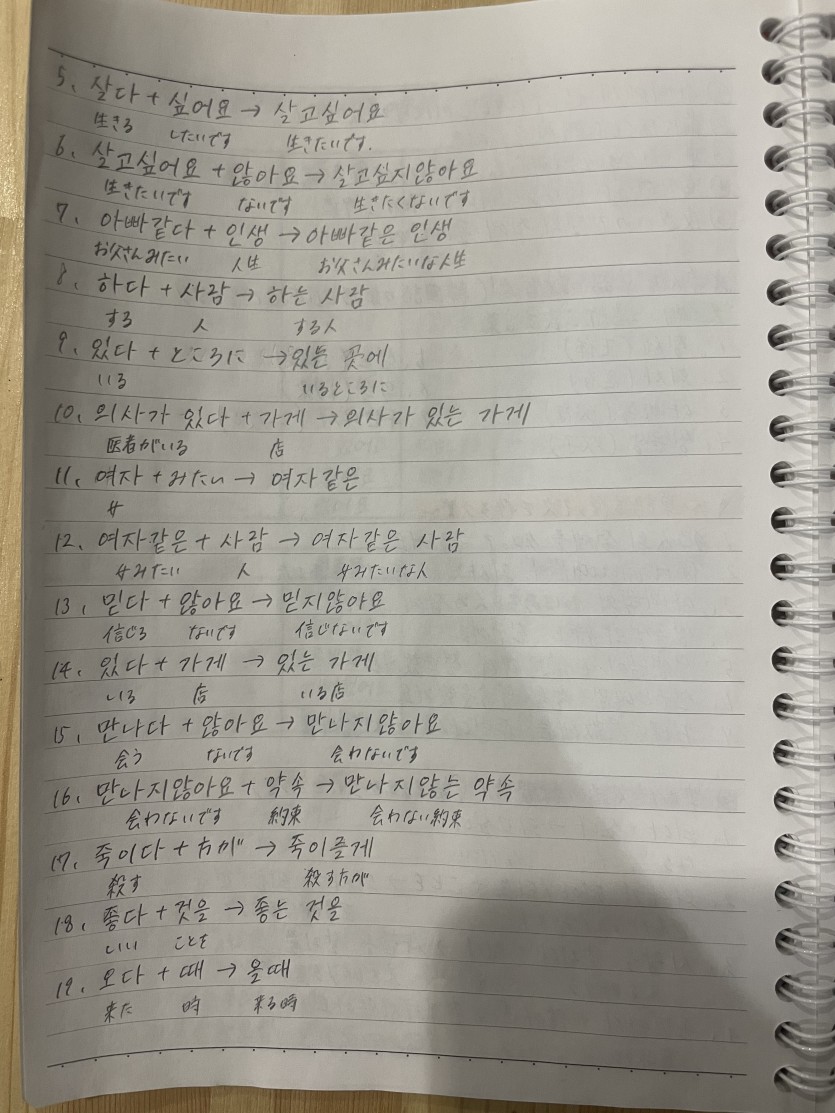 5. 살다 + 싶어요 → 살고싶어요
生きる したいです 生きたいです.
6. 살고싶어요 + 않아요 → 살고싶지않아요
生きたいです ないです 生きたくないです
7. 아빠같다 + 인생 → 아빠같은 인생
お父さんみたい 人生 お父さんみたいな人生
8. 하다 + 사람 → 하는 사람
する 人 する人
9. 있다 + ところに → 있는 곳에
いる いるところに
10. 의사가 있다 + 가게 → 의사가 있는 가게
医者がいる 店
11. 여자 + みたい → 여자같은
女
12. 여자같은 + 사람 → 여자같은 사람
女みたい 人 女みたいな人
13. 믿다 + 않아요 → 믿지않아요
信じる ないです 信じないです
14. 있다 + 가게 → 있는 가게
いる 店 いる店
15. 만나다 + 않아요 → 만나지않아요
会う ないです 会わないです
16. 만나지않아요 + 약속 → 만나지않는 약속
会わないです 約束 会わない約束
17. 죽이다 + 方が → 죽이는게
殺す 殺す方が
18. 좋다 + 것을 → 좋는 것을
いい ことを
19. 오다 + 때 → 올때
来た 時 来る時